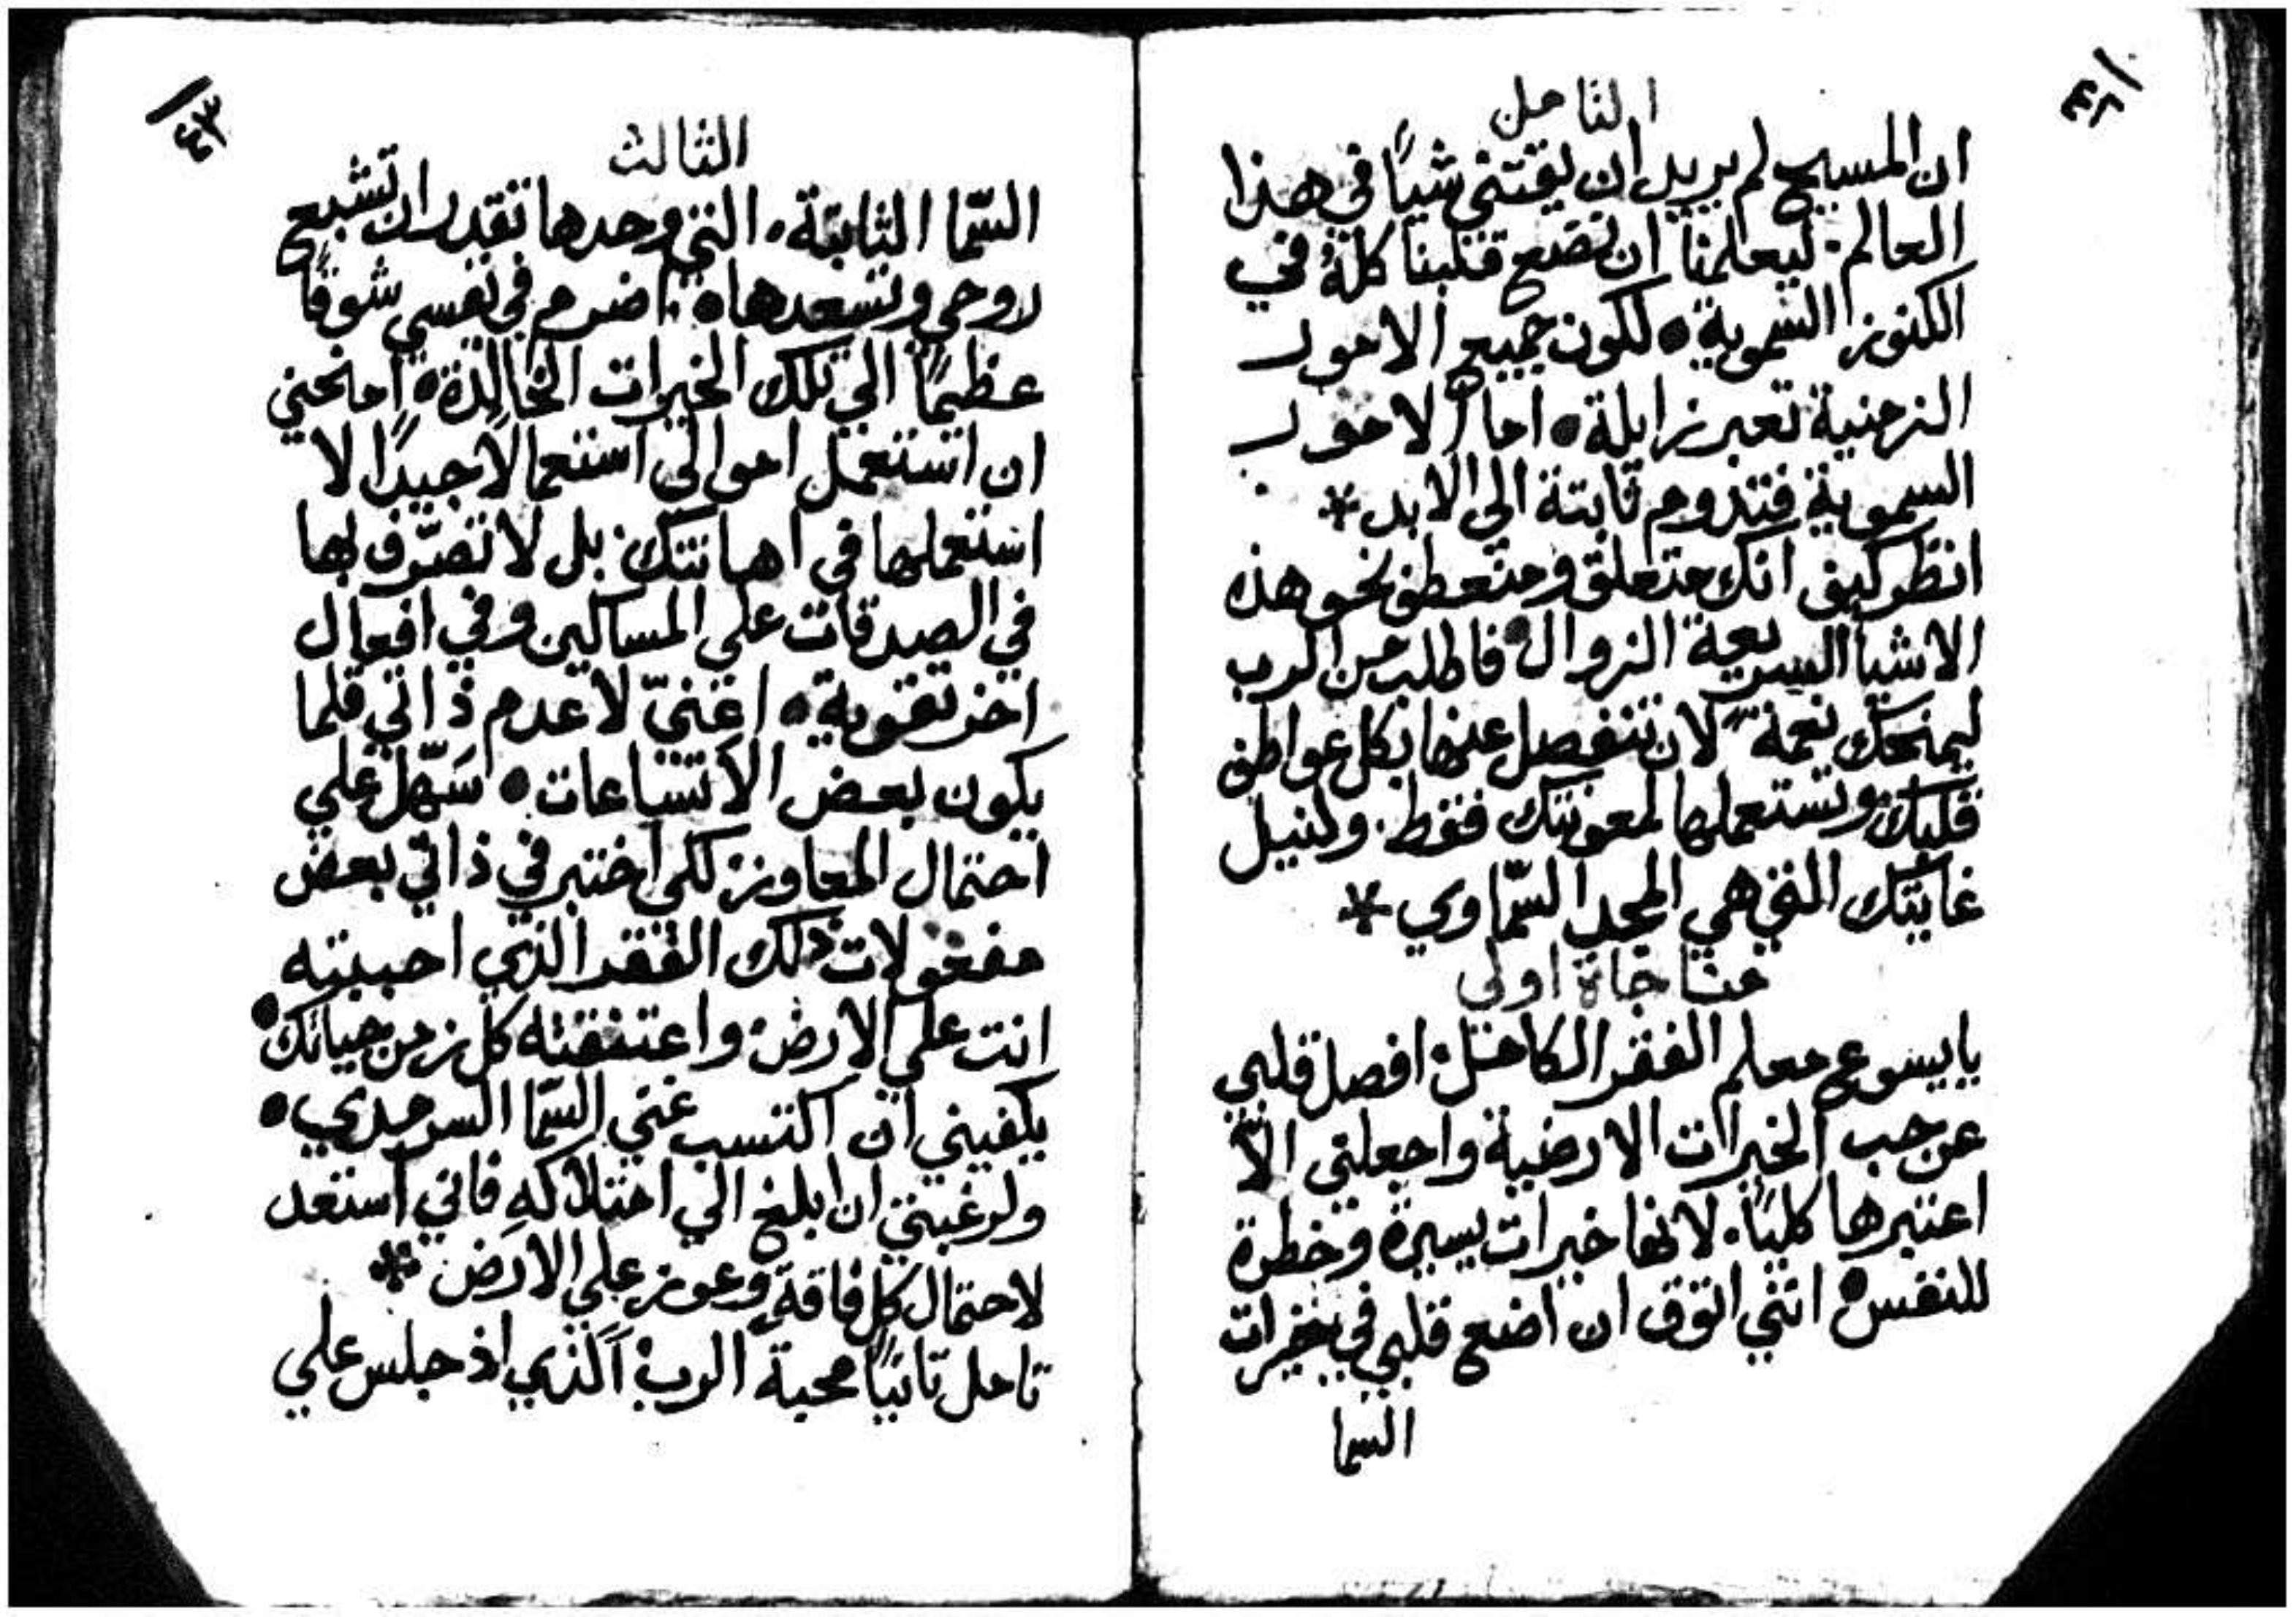 ٤٢
التامل
ان المسيح لم يريد ان يقتني شياً في هذا
العالم. ليعلمنا ان نضع قلبنا كلهُ في
الكنوز السموية • لكون جميع الامور
الزمنية تعبر زايلة • اما الامور
السموية فتدوم ثابتة الي الابد *
انظر كيف انك متعلق ومنعطف نحو هذه
الاشيا السريعة الزوال • فاطلب من الرب
ليمنحك نعمةً لان تنفصل عنها بكل عواطف
قلبك وتستعملها لمعونتك فقط. ولنيل
غايتك التي هي المجد السّماوي *
مناجاة اولي
يا يسوع معلم الفقر الكامل. افصل قلبي
عن حب الخيرات الارضية واجعلني الاّ
اعتبرها كليًا. لانها خيرات يسيرة وخطرة
للنفس • انني اتوق ان اضع قلبي في خيرات
السما
٤٣
الثالث
السّما الثابتة. التي وحدها تقدر ان تشبع
روحي وتسعدها • اضرم في نفسي شوقًا
عظيمًا الي تلك الخيرات الخالدة • امنحني
ان استعمل اموالي استعمالاً جيدًا لا
استعملها في اهانتك. بل لا تصرّف بها
في الصدقات علي المساكين وفي افعال
اخر تقوية • اعنّي لاعدم ذاتي قلما
يكون بعض الاتساعات • سَهّل علي
احتمال المعاوز لكي اختبر في ذاتي بعض
مفعولات ذلك الفقر الذي احببته
انت علي الارض. واعتنقته كل زمن حياتك •
يكفيني ان اكتسب غني السّما السرمدي •
ولرغبتي ان ابلغ الي امتلاكه فاني استعد
لاحتمال كل فاقةٍ وعوز علي الارض *
تامل ثانيًا محبة الرب الذي اذ جلس علي